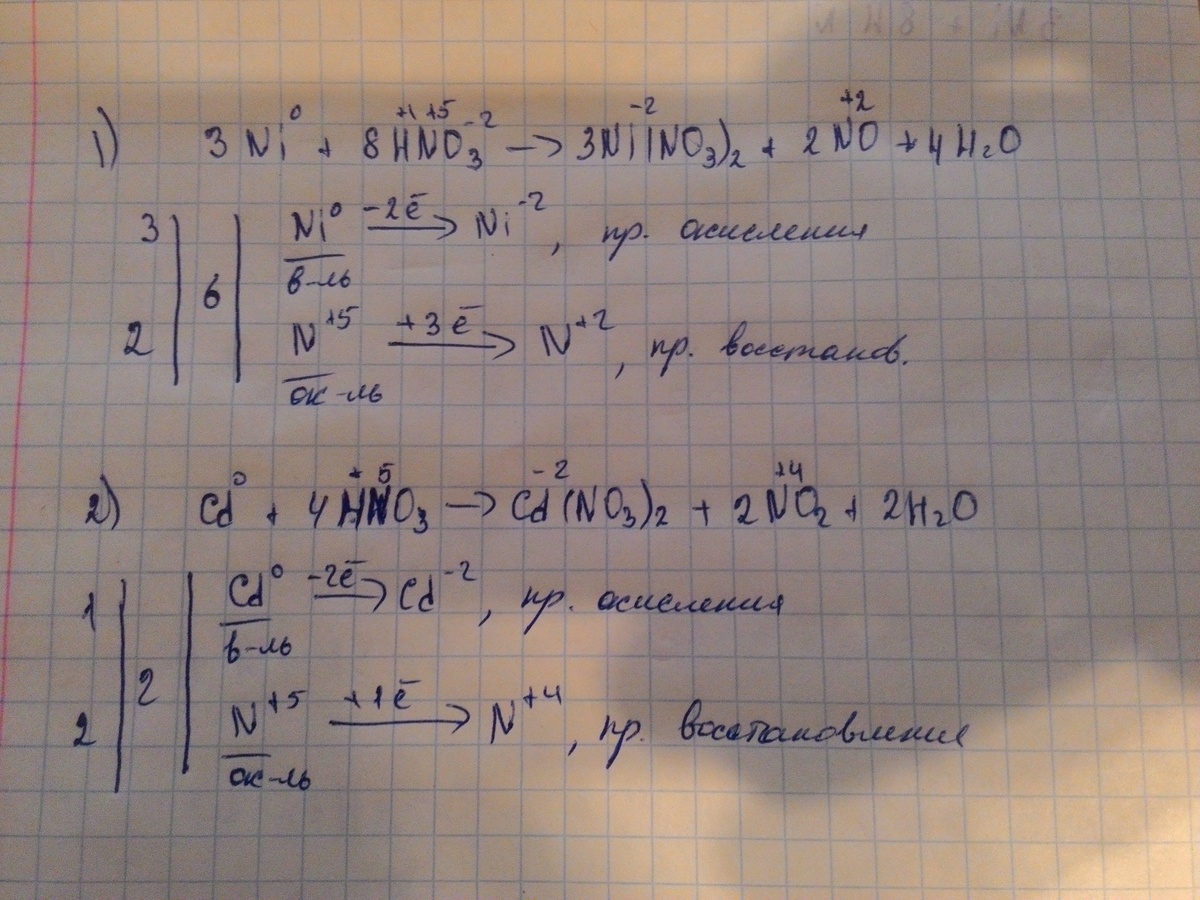 1) 3Ni⁰ + 8H⁺¹N⁺⁵O₃⁻² → 3Ni⁻²(NO₃)₂ + 2N⁺²O + 4H₂O
3 | 6 | Ni⁰ –2ē→ Ni⁻², пр. окисления
в-ль
2 N⁺⁵ +3ē→ N⁺², пр. восстанов.
ок-ль
2) Cd⁰ + 4H⁺N⁵O₃ → Cd⁻²(NO₃)₂ + 2N⁺⁴O₂ + 2H₂O
1 | 2 | Cd⁰ –2ē→ Cd⁻², пр. окисления
в-ль
2 N⁺⁵ +1ē→ N⁺⁴, пр. восстановления
ок-ль